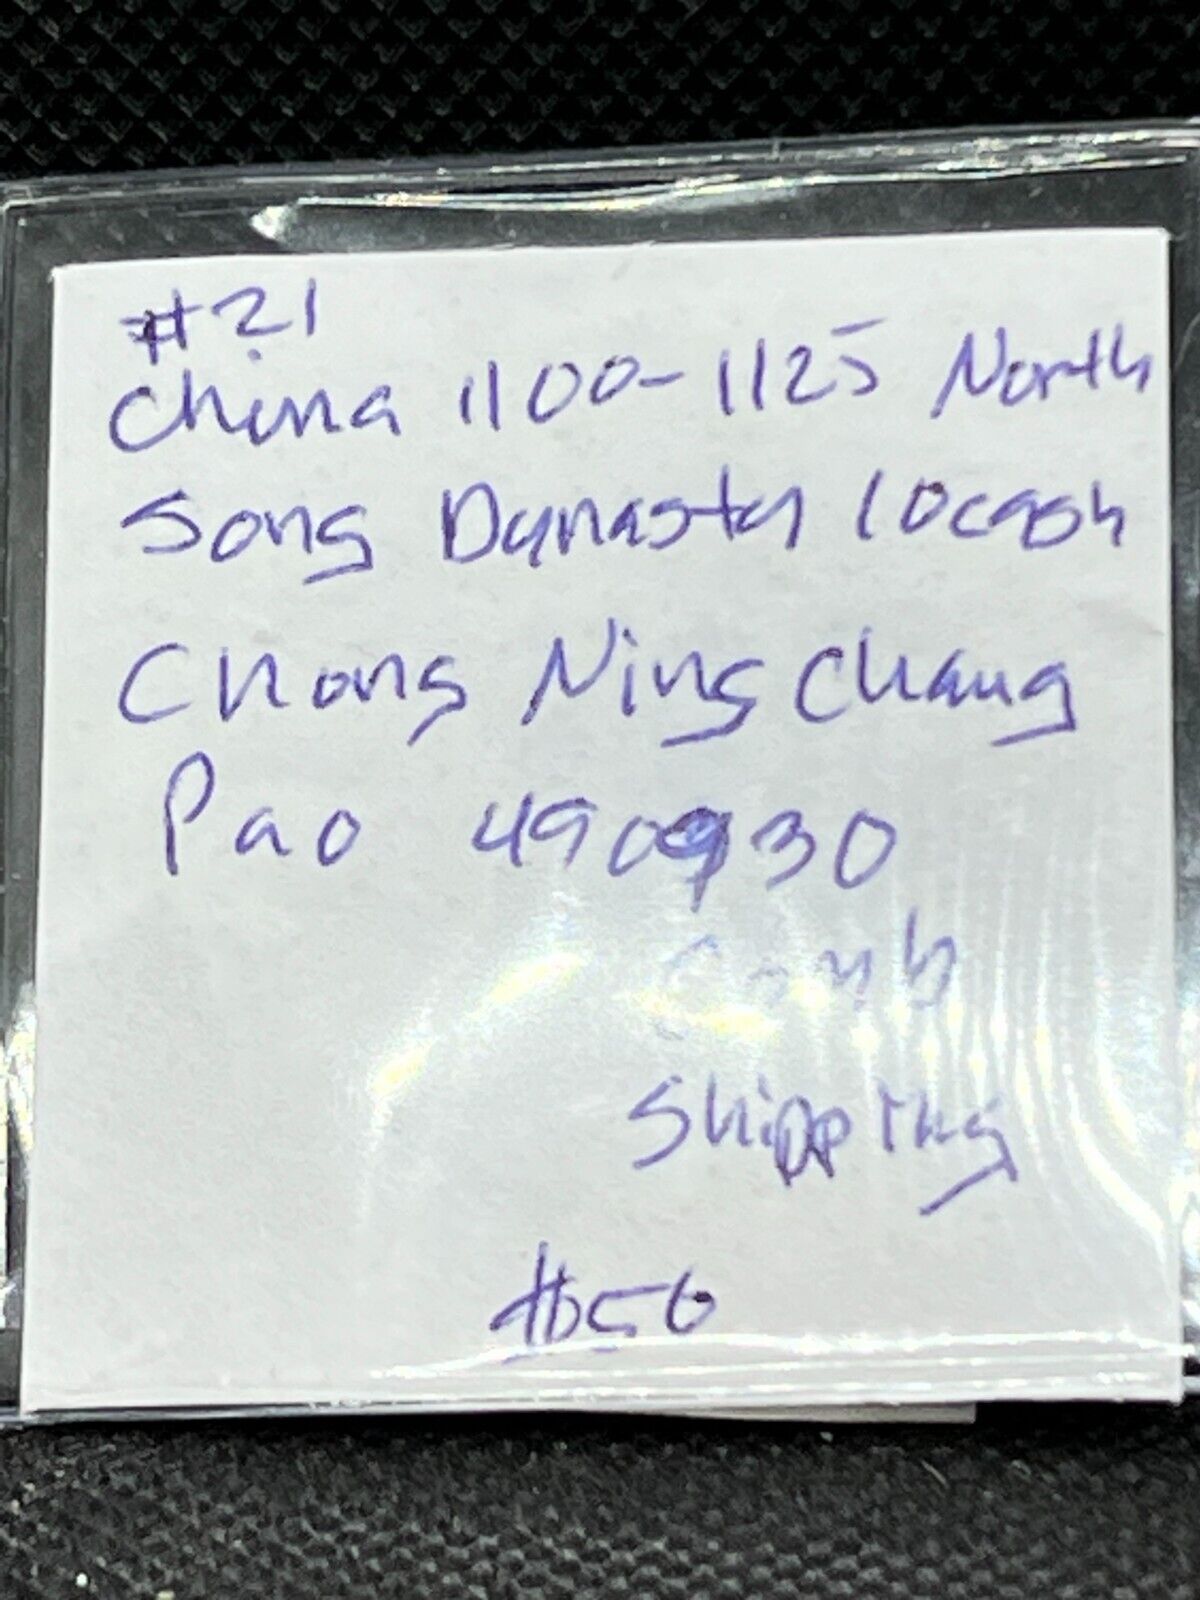 #21
China 1100-1125 North
Song Dynasty 10cash
Chong Ning Chang
Pao 490930
Comb
Shipping